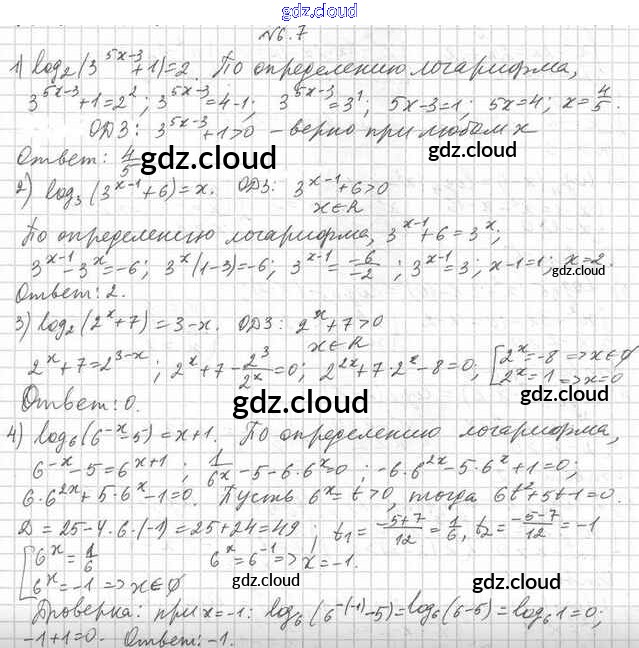 gdz.cloud
№6.7
1) log₂(3^(5x-3)+1)=2. По определению логарифма,
3^(5x-3)+1=2²; 3^(5x-3)=4-1; 3^(5x-3)=3¹; 5x-3=1; 5x=4; x=4/5.
ОДЗ: 3^(5x-3)+1>0 - верно при любом x
Ответ: 4/5 gdz.cloud gdz.cloud
2) log₃(3^(x-1)+6)=x. ОДЗ: 3^(x-1)+6>0
x∈R
По определению логарифма, 3^(x-1)+6=3^x;
3^(x-1)-3^x=-6; 3^x(1-3)=-6; 3^(x-1)=-6/-2; 3^(x-1)=3; x-1=1; x=2.
gdz.cloud
Ответ: 2. gdz.cloud
3) log₂(2^x+7)=3-x. ОДЗ: 2^x+7>0
x∈R
2^x+7=2^(3-x); 2^x+7-2³/2^x=0; 2^(2x)+7·2^x-8=0; [2^x=-8 => x∈∅
2^x=1 => x=0
gdz.cloud
Ответ: 0. gdz.cloud
4) log₆(6^(-x)-5)=x+1. По определению логарифма,
6^(-x)-5=6^(x+1); 1/6^x-5-6·6^x=0; -6·6^(2x)-5·6^x+1=0;
6·6^(2x)+5·6^x-1=0. Пусть 6^x=t>0, тогда 6t²+5t-1=0.
D=25-4·6·(-1)=25+24=49; t₁=(-5+7)/12=1/6, t₂=(-5-7)/12=-1
[6^x=1/6 6^x=6^(-1) => x=-1.
6^x=-1 => x∈∅ gdz.cloud gdz.cloud
Проверка: при x=-1: log₆(6^(-(-1))-5)=log₆(6-5)=log₆1=0;
-1+1=0. Ответ: -1.